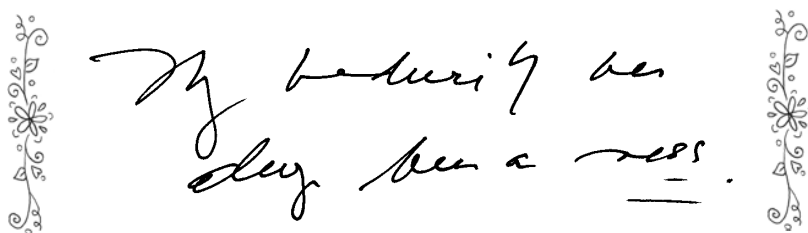 My handwriting has
always been a mess.